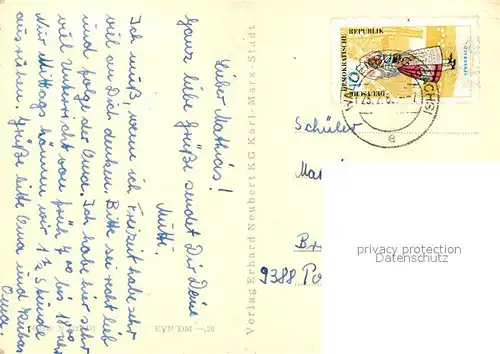 Lieber Mathias!
Ganz liebe Grüße sendet Dir Deine
Mutti.
Ich muß, wenn ich Freizeit habe sehr
viel an Dich denken. Bitte sei recht lieb
und folge der Oma. Ich habe hier sehr
viel Unterricht von früh 7⁰⁰ bis 18⁰⁰ Uhr
Nur Mittags können wir 1 ½ Stunde
ausruhen. Grüße bitte Oma und
Oma.
Verlag Erhard Neubert KG Karl-Marx-Stadt
EVP DM —,20
DEMOKRATISCHE
REPUBLIK
Schüler
9388 Po
privacy protection
watermark ansichtskarten-lexikon.de